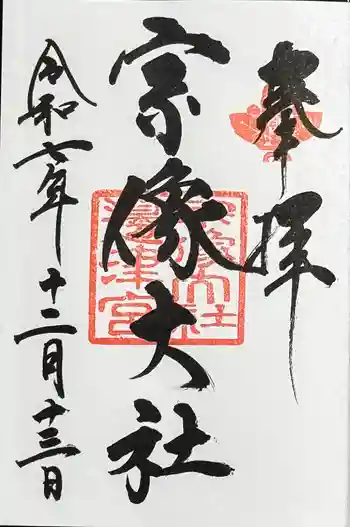 奉拝
宗像大社
令和七年十二月十三日
宗像大社
邊津宮